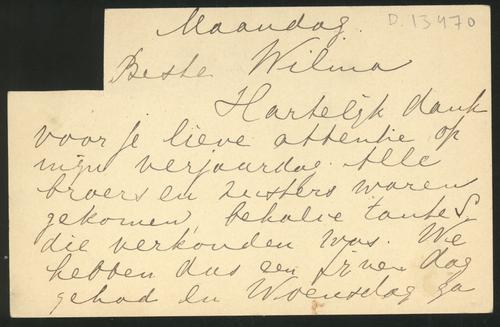 Maandag.
D.13470
Beste Wilma
Hartelijk dank
voor je lieve attentie op
mijn verjaardag. Alle
broers en zusters waren
gekomen, behalve tante S.
die verkouden was. We
hebben dus een dag
gehad en Woensdag ga